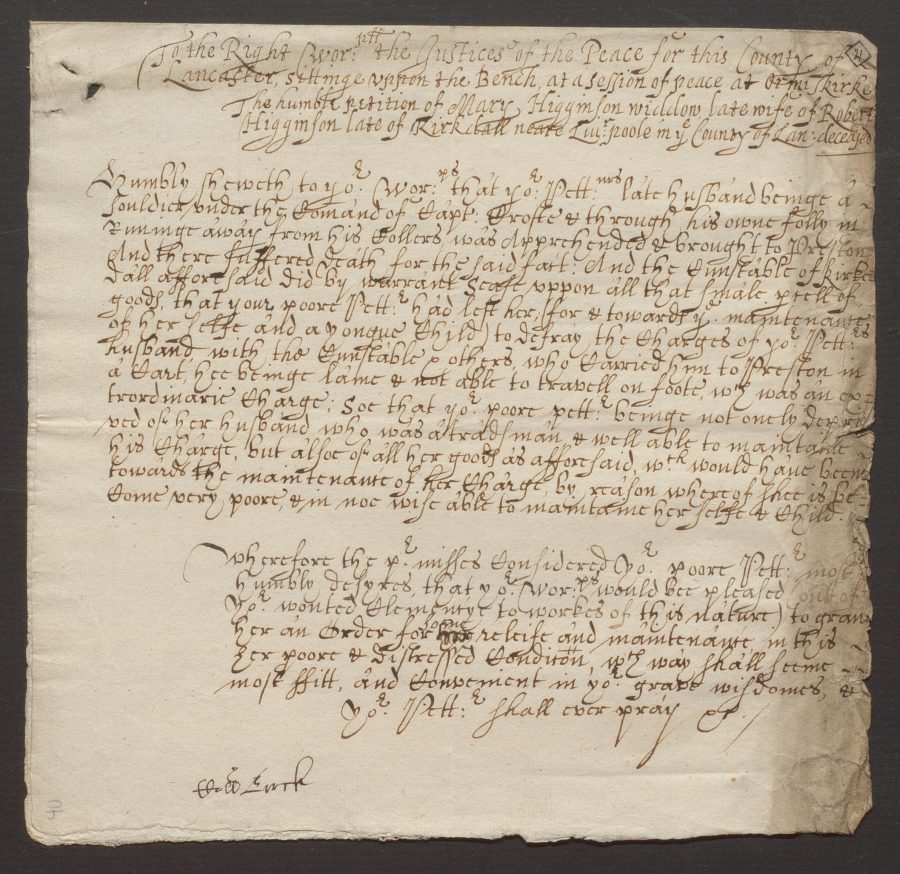 To the Right Wor:pll the Justices of the Peace for this County of
Lancaster, sittinge uppon the Bench, at a session of peace, at Ormiskirke
The humble petition of Mary Higginson widdow late wife of Robert
Higginson late of Kirkdall neare Liu:rpoole in ye County of Lan: deceased
Humbly sheweth to yor: Wor:ps that yor: Pett:nrs late husband beinge a
souldier under the Comand of Capt: Crofte & through his owne folly in
Runinge away from his Collers, was Apprehended & brought to Preston
And there suffered death for the said fact: And the Cunstable of Kirke
dall afforesaid did by warrant Sease uppon all that smale p'cell of
goods, that your poore Pett:r had left her, (for & towards ye maintenance
of her selfe and a yongue Child) to defray the Charges of yor: Pett:rs
husband, with the Cunstable & others, who Carried him to Preston in
a Cart, hee beinge lame & not able to travell on foote, wch was an ex
trordinarie Charge; Soe that yor: poore pett:r beinge not onely depri
ved of her husband who was a tradsman, & well able to maintaine
his Charge, but alsoe of all her goods as afforesaid, wch would have beene
towards the maintenance of her Charge, by reason whereof shee is be-
Come very poore, & in noe wise able to maintaine her selfe & Child
Wherefore the pr:misses Considered Yor: poore Pett:r most
humbly desyres, that yor: Wor:ps would bee pleased (out of
Yor: wonted Clementye to workes of this nature) to graun
her an Order for some releife and maintenance in this
her poore & distressed Condition, wch way shall seeme
most ffitt, and Convenient in yor: grave wisdomes, &
Yor: Pett:r shall ever pray &c./